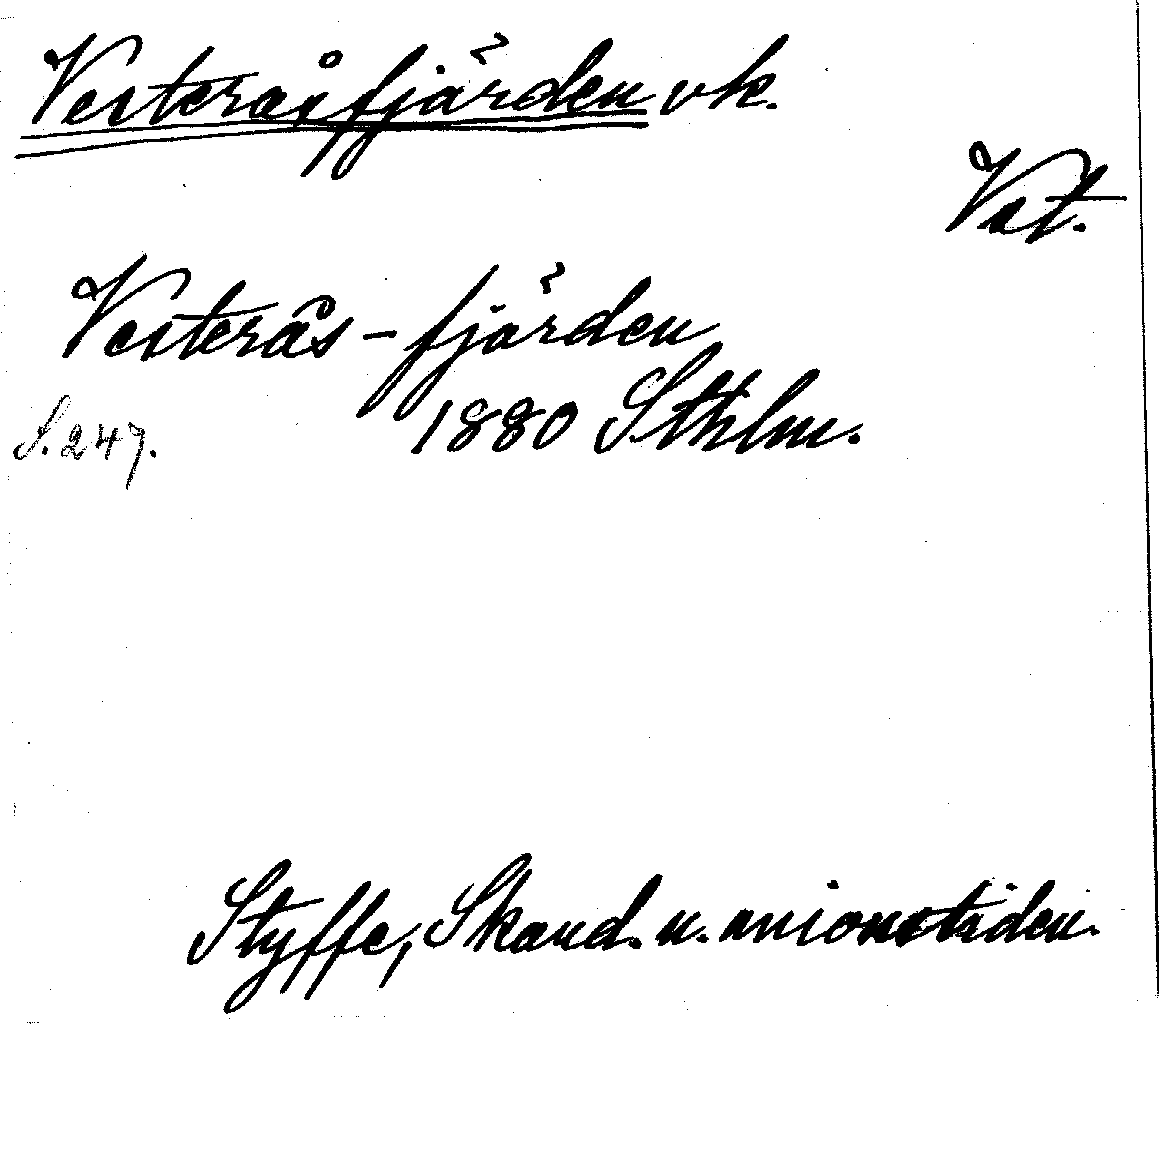 Vesteråsfjärden vk.
Vat.
Vesterås-fjärden
S. 247. 1880 Sthlm.
Styffe, Skand. u. unionstiden.